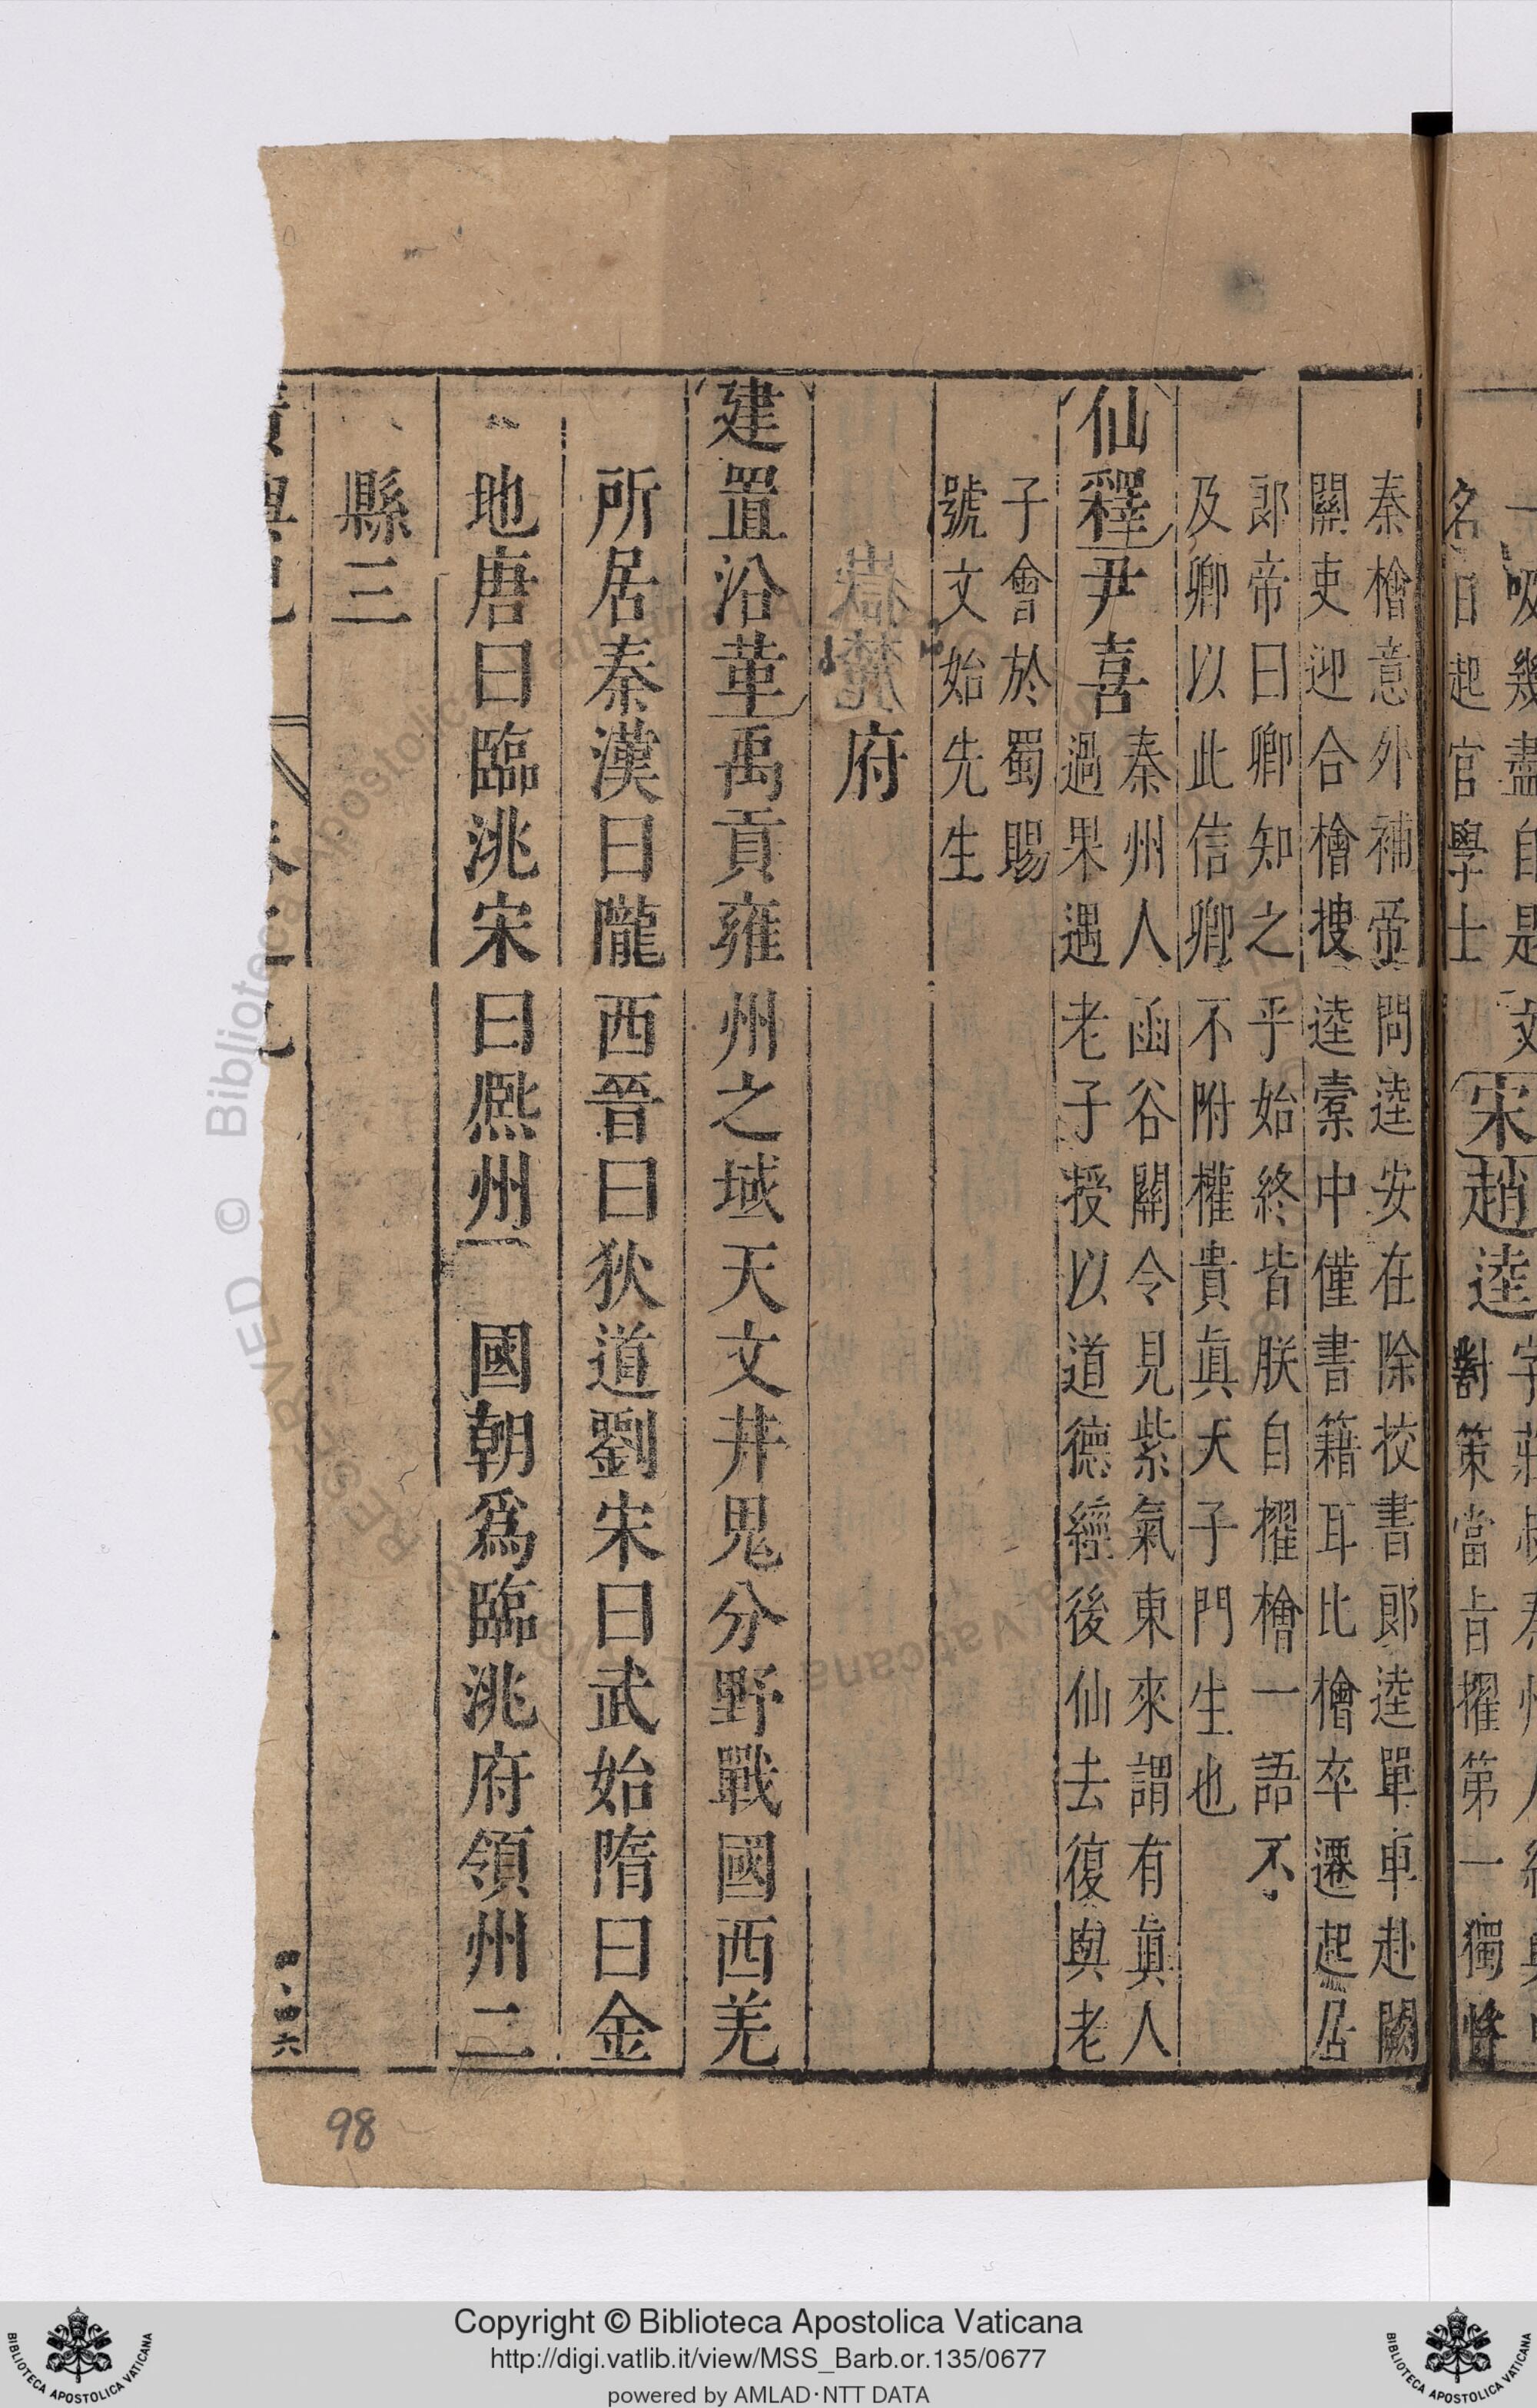 名日起官學士
宋趙逵
對策當旨擢第一獨忤
秦檜意外補帝問逵安在除校書郎逵單車赴闕
關吏迎合檜搜逵橐中僅書籍耳比檜卒遷起居
郎帝曰卿知之乎始終皆朕自擢檜一語不
及卿以此信卿不附權貴眞天子門生也
仙釋尹喜
秦州人函谷關令見紫氣東來謂有眞人
過果遇老子授以道德經後仙去復與老
子會於蜀賜
號文始先生
府
建置沿革禹貢雍州之域天文井鬼分野戰國西羌
所居秦漢曰隴西晉曰狄道劉宋曰武始隋曰金
地唐曰臨洮宋曰熈州 國朝爲臨洮府領州二
縣三
98
Copyright © Biblioteca Apostolica Vaticana
http://digi.vatlib.it/view/MSS_Barb.or.135/0677
powered by AMLAD·NTT DATA